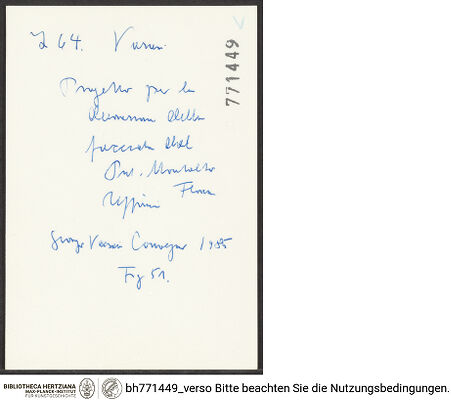 264. Vasari
771449
Progetto per la
decorazione della
facciata del
Pal. Montalvo
Firenze
Uffizi
Giorgio Vasari Convegno 1985
Fig 51.
BIBLIOTHECA HERTZIANA
MAX-PLANCK-INSTITUT
FÜR KUNSTGESCHICHTE
bh771449_verso Bitte beachten Sie die Nutzungsbedingungen.